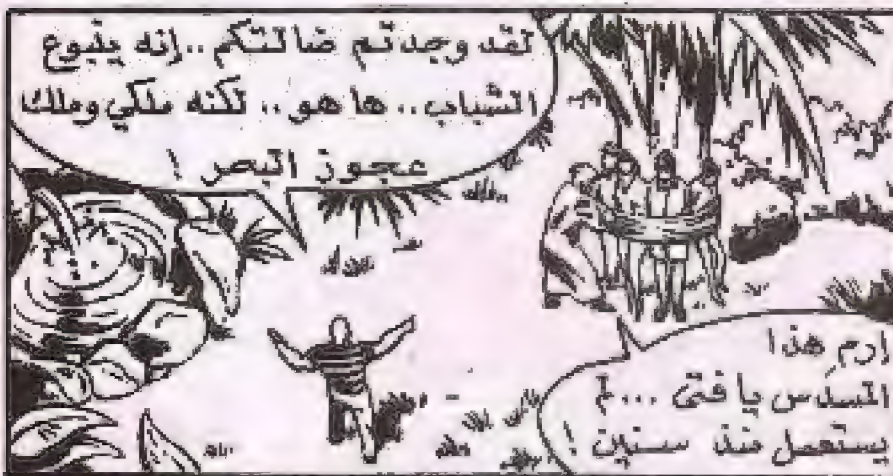 لقد وجدتم ضالتكم .. إنه ينبوع
الشباب .. ها هو .. لكنه ملكي وملك
عجوز البحر !
ارم هذا
المسدس يا فتى ... لم
يستعمل منذ سنين !